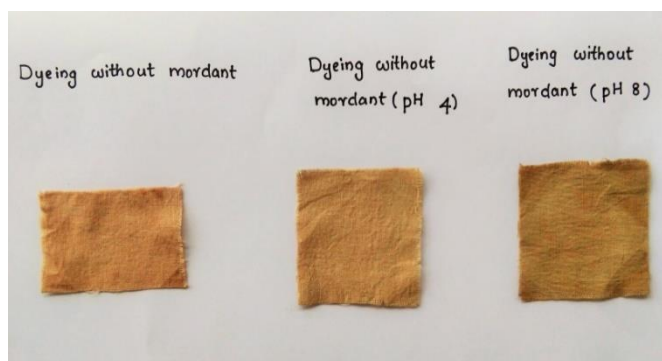 Dyeing without mordant
Dyeing without
mordant (pH 4)
Dyeing without
mordant (pH 8)